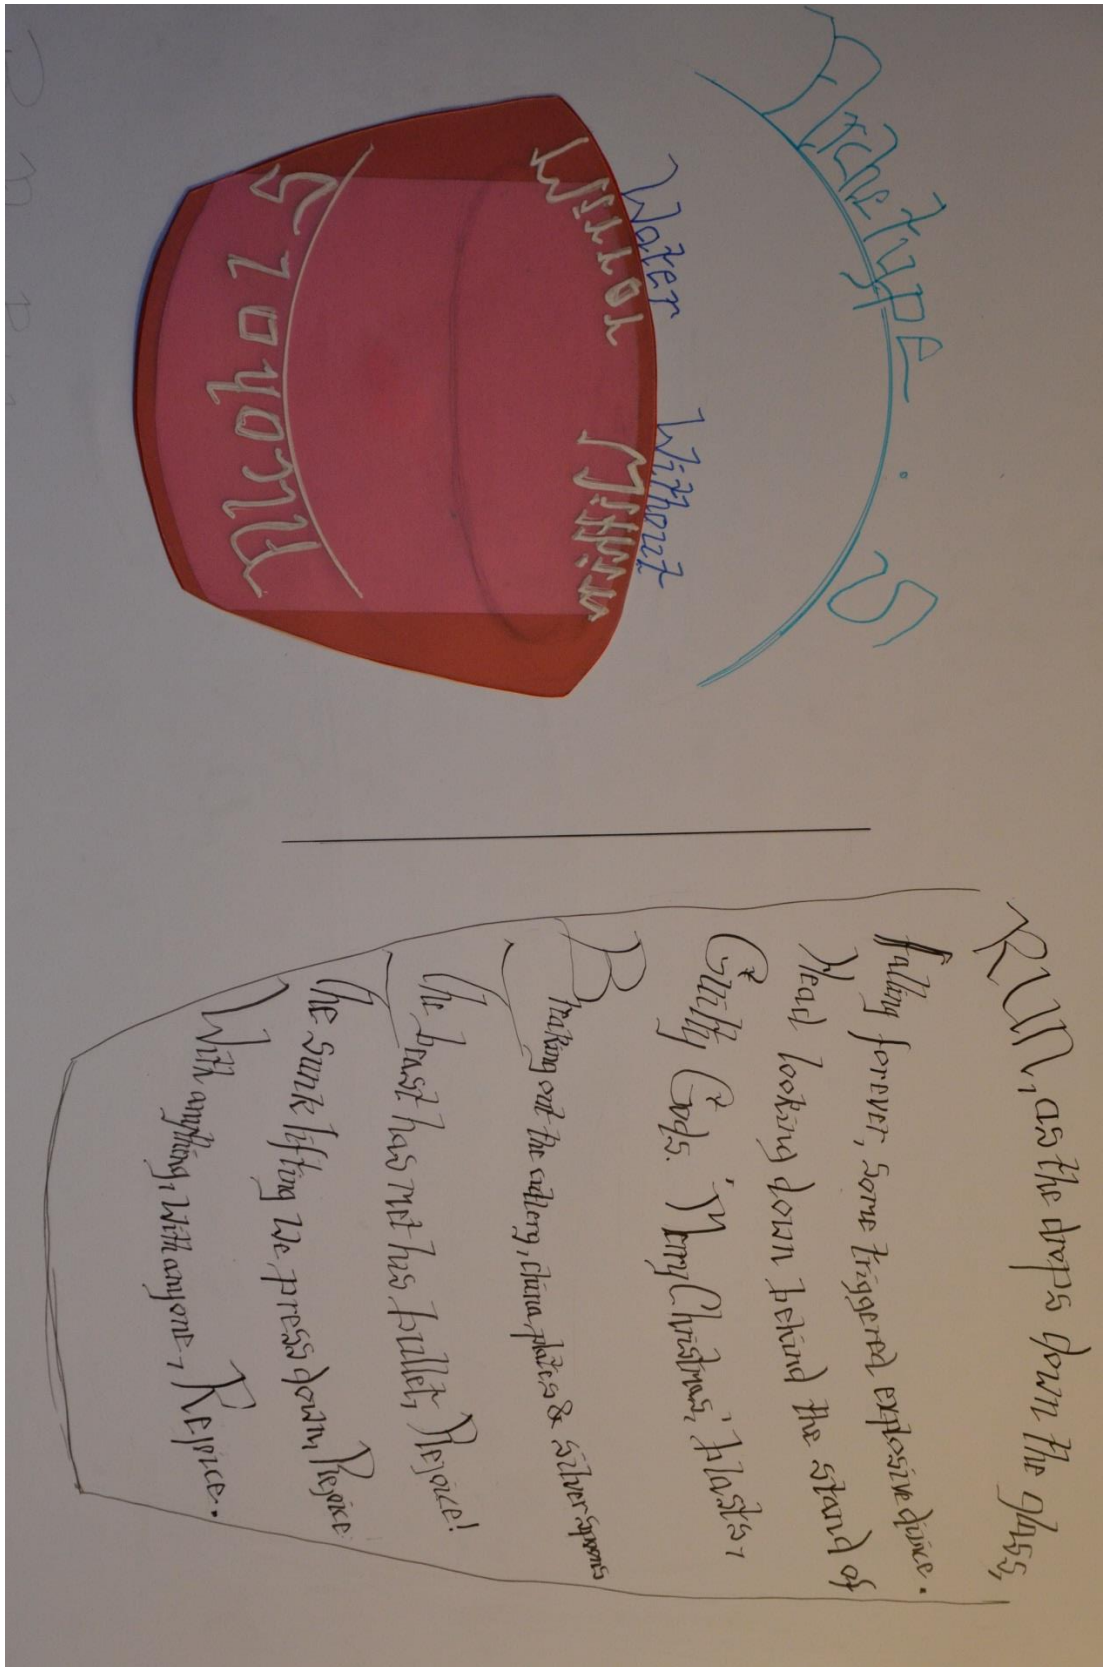 Archetype. S
Water Without
Mirror Within
Alcohol S
RUN, as the drops down the glass,
falling forever, some triggered explosive
Head looking down behind the stand of
Guilty Gods. 'Merry Christmas', blasts,
Braking out the cutlery, china plates & silver spoons
The beast has met his bullet, Rejoice!
The sunk lifting we press down, Rejoice
With anything, with anyone, Rejoice.